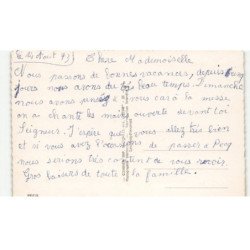 le 14 Août 73
Chère Mademoiselle
Nous passons de bonnes vacances, depuis
jours nous avons du très beau temps. Dimanche
nous avons pensé à vous car à la messe
on a chanté les mains ouverte devant toi
Seigneur. J'espère que vous allez très bien
et si vous avez l'occasion de passer à
nous serions très content de vous revoir.
Gros baisers de toute la famille.